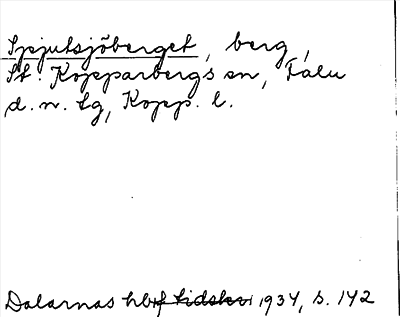 Spjutsjöberget, berg,
St. Kopparbergs sn, Falu
d.n. tg, Kopp. l.
Dalarnas hbf tidskr 1934, s. 142